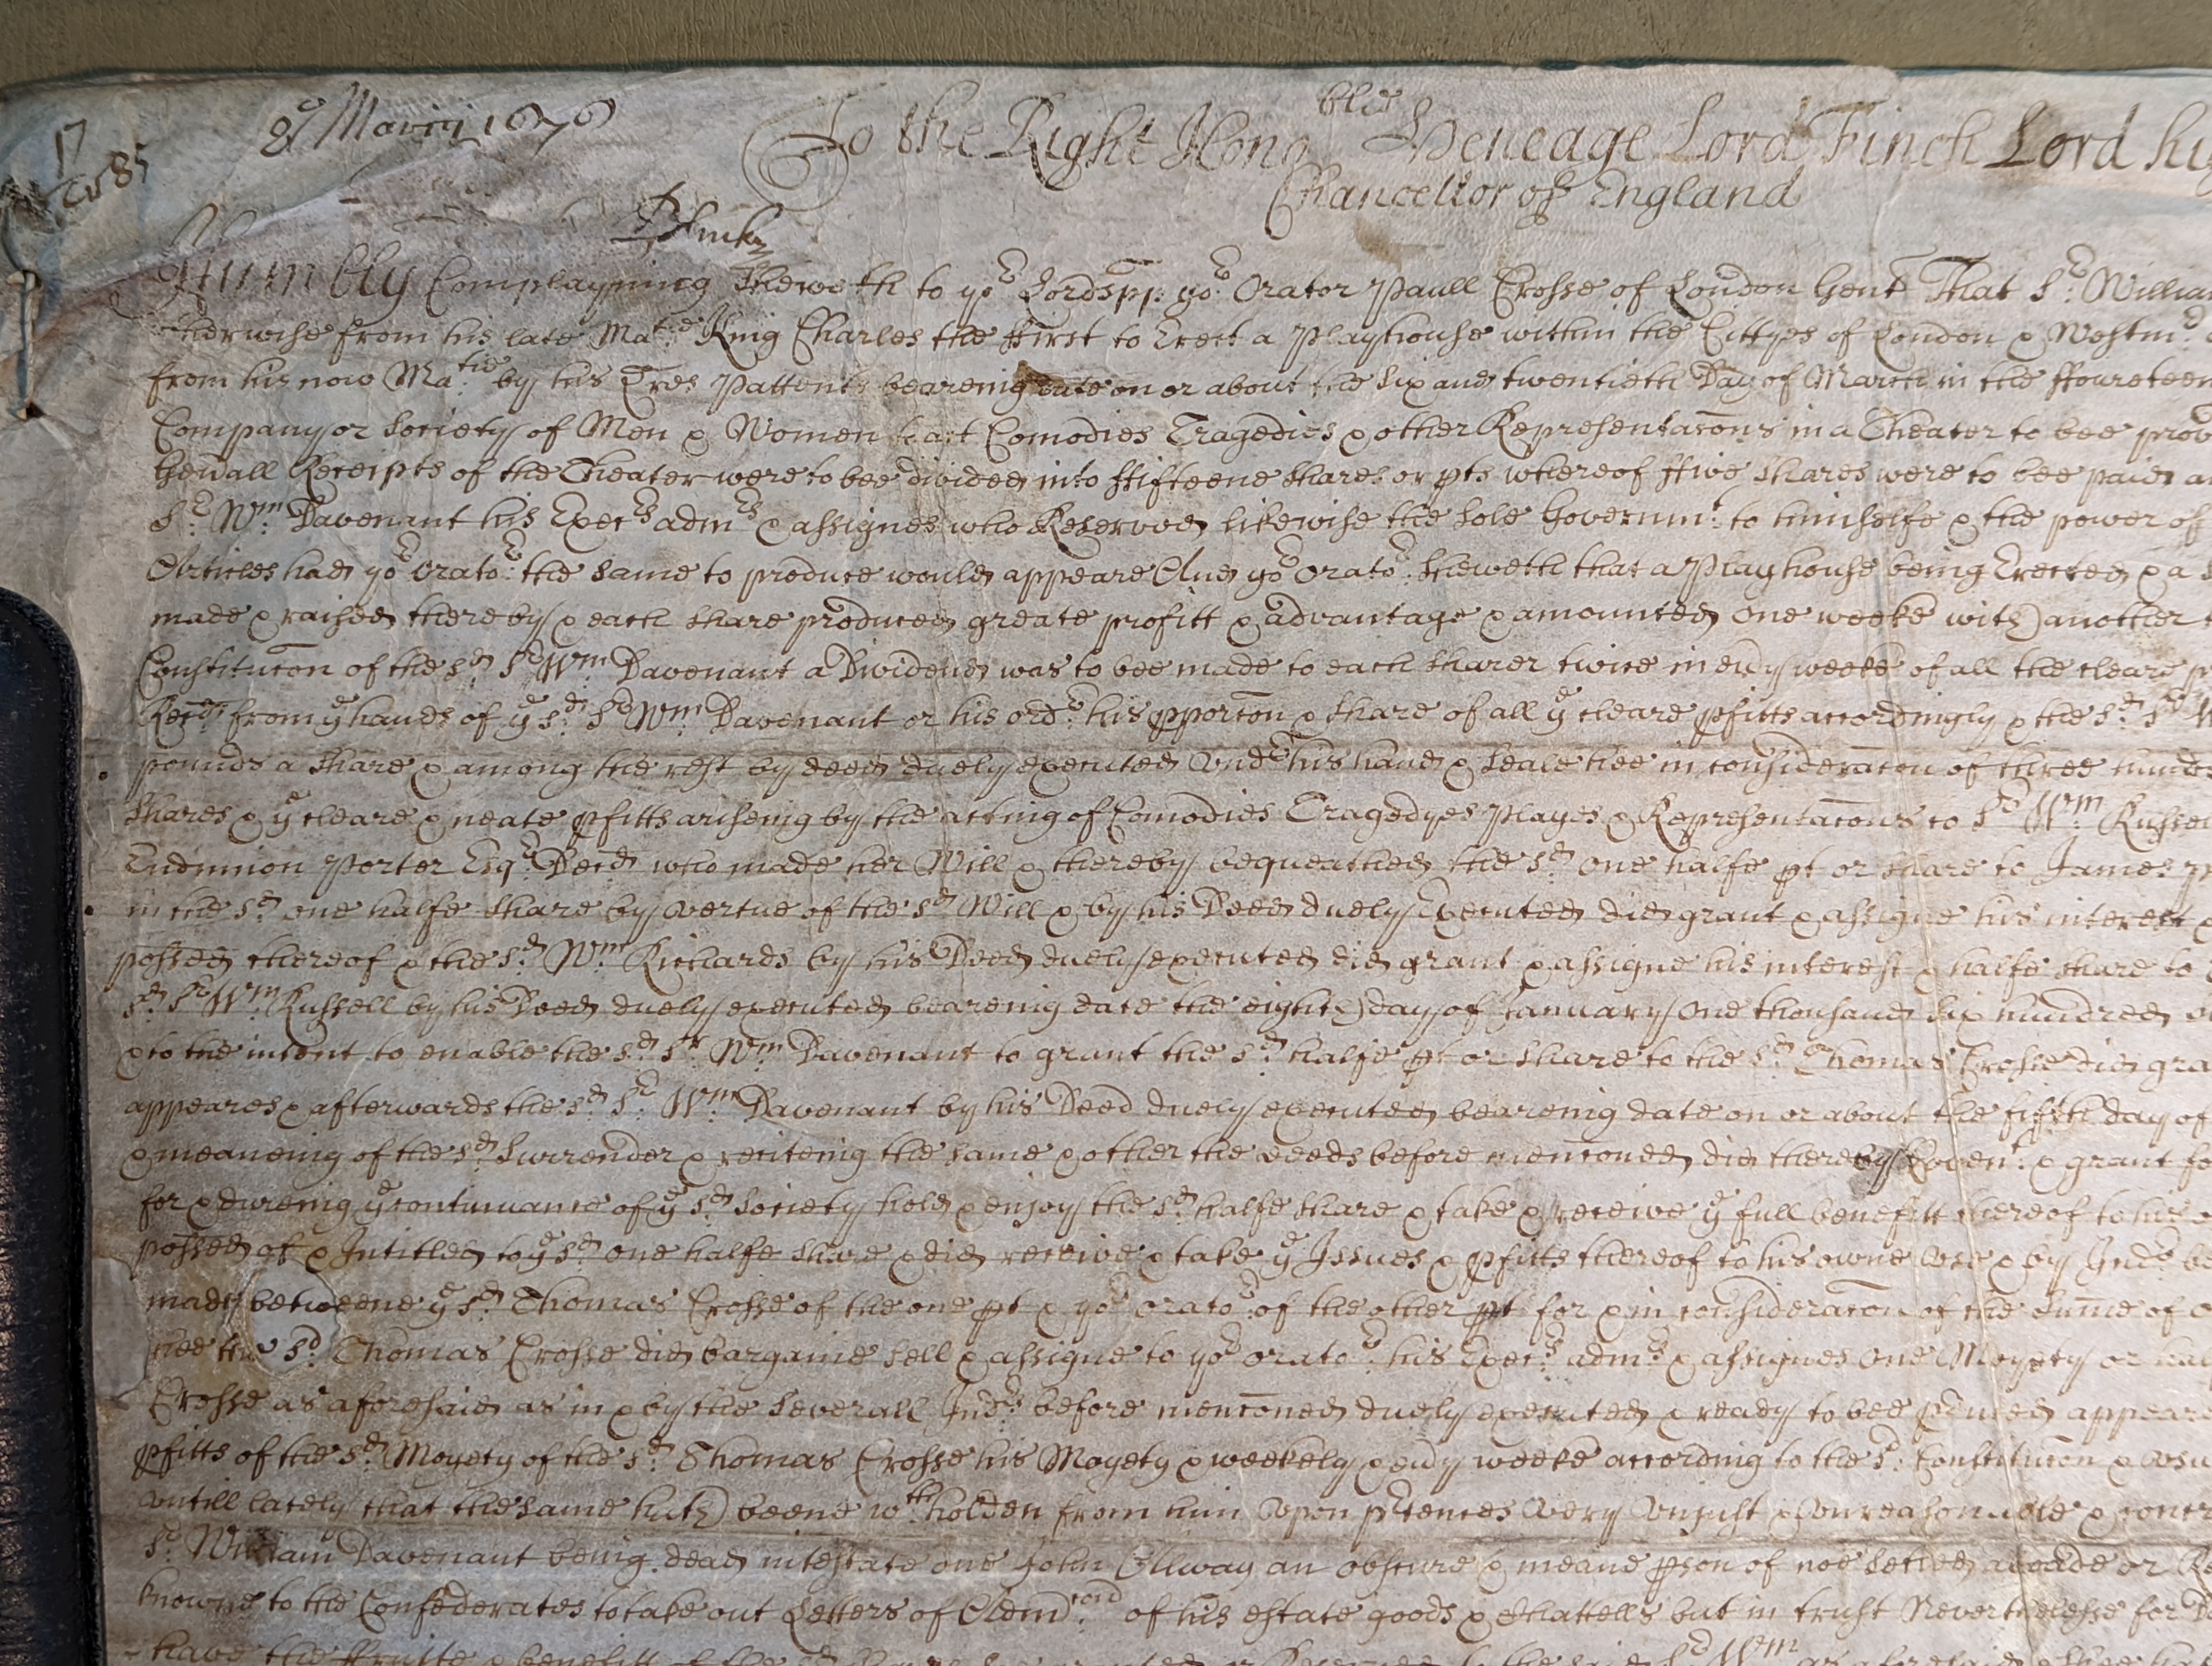 17
85
8° Martij 1676
To the Right Hono ble Heneage Lord Finch Lord hi
Chancellor of England
Humbly Complayning Sheweth to yor Lordspp: yor Orator Paull Crosse of London Gent That Sr William
herwise from his late Matie King Charles the ffirst to Erect a Playhouse within the Cittyes of London & Westmr
from his now Matie by his Lres Pattents beareing date on or about the Six and twentieth Day of March in the ffoureteen
Company or Society of Men & Women to act Comodies Tragedies & other Representacons in a Theater to bee prov
Gen'all Receipts of the Theater were to bee divided into ffifteene Shares or pts whereof ffive Shares were to bee paid
Sr Wm Davenant his Execrs admrs & assignes who Reserved likewise the Sole Governmt to himselfe & the power of
Articles had yor Orator the same to produce would appeare And yor Orator Sheweth that a Playhouse being Erected & a
made & raised thereby & each share produced greate profitt & advantage & amounted one weeke with another
Constitucon of the sd Sr Wm Davenant a Dividend was to bee made to each Sharer twice in ev'y weeke of all the cleare
from ye hands of ye sd Sr Wm Davenant or his ordr his pporcon & Share of all ye cleare pfitts accordingly & the sd Sr W
pounds a Share & among the rest by deed duely executed Under his hand & Seale hee in consideracon of three hund
Shares & ye cleare & neate pfitts ariseing by the acting of Comodies Tragedyes Playes & Representacons to Sr Wm Russel
Endimion Porter Esqr Decd who made her Will & thereby bequeathed the sd one halfe pt or Share to James
in the sd one halfe Share by vertue of the sd Will & by his Deed duely Executed did grant & assigne his interest
possed thereof & the sd Wm Richards by his Deed duely executed did grant & assigne his interest & halfe Share to
sd Sr Wm Russell by his Deed duely executed beareing date the eighth day of January One thousand Six hundred
& to the intent to enable the sd Sr Wm Davenant to grant the sd halfe pt or Share to the sd Thomas Crosse did gra
appeares & afterwards the sd Sr Wm Davenant by his Deed duely executed beareing date on or about the fifth day of
& meaneing of the sd Surrender & reciteing the same & other the deeds before menconed did thereby Covent & grant
for & dureing ye continuance of ye sd Society hold & enjoy the sd halfe Share & take & receive ye full benefitt thereof to his
possed of & Intitled to ye sd one halfe Share & did receive & take ye Issues & pfitts thereof to his owne Use & by Indre
made betweene ye sd Thomas Crosse of the one pt & yor Orator of the other pt for & in consideracon of the Summe of
hee the sd Thomas Crosse did bargaine Sell & assigne to yor Orator his Execrs admrs & assignes One Moyety or hal
Crosse as aforesaid as in & by the Severall Indres before menconed duely executed & ready to bee pduced appear
pfitts of the sd Moyety of the sd Thomas Crosse his Moyety & weekely & ev'y weeke according to the sd Constitucon & Usu
Untill lately that the same hath beene wthholden from him Upon ptences Very Unjust & Unreasonable & contr
Sr William Davenant being dead intestate one John Ollway an obscure & meane pson of noe Setled aboade or
knowne to the Confederates to take out Letters of Admcon of his estate goods & Chattells but in trust Neverthelesse for
have the ffruite & benefitt of the sd